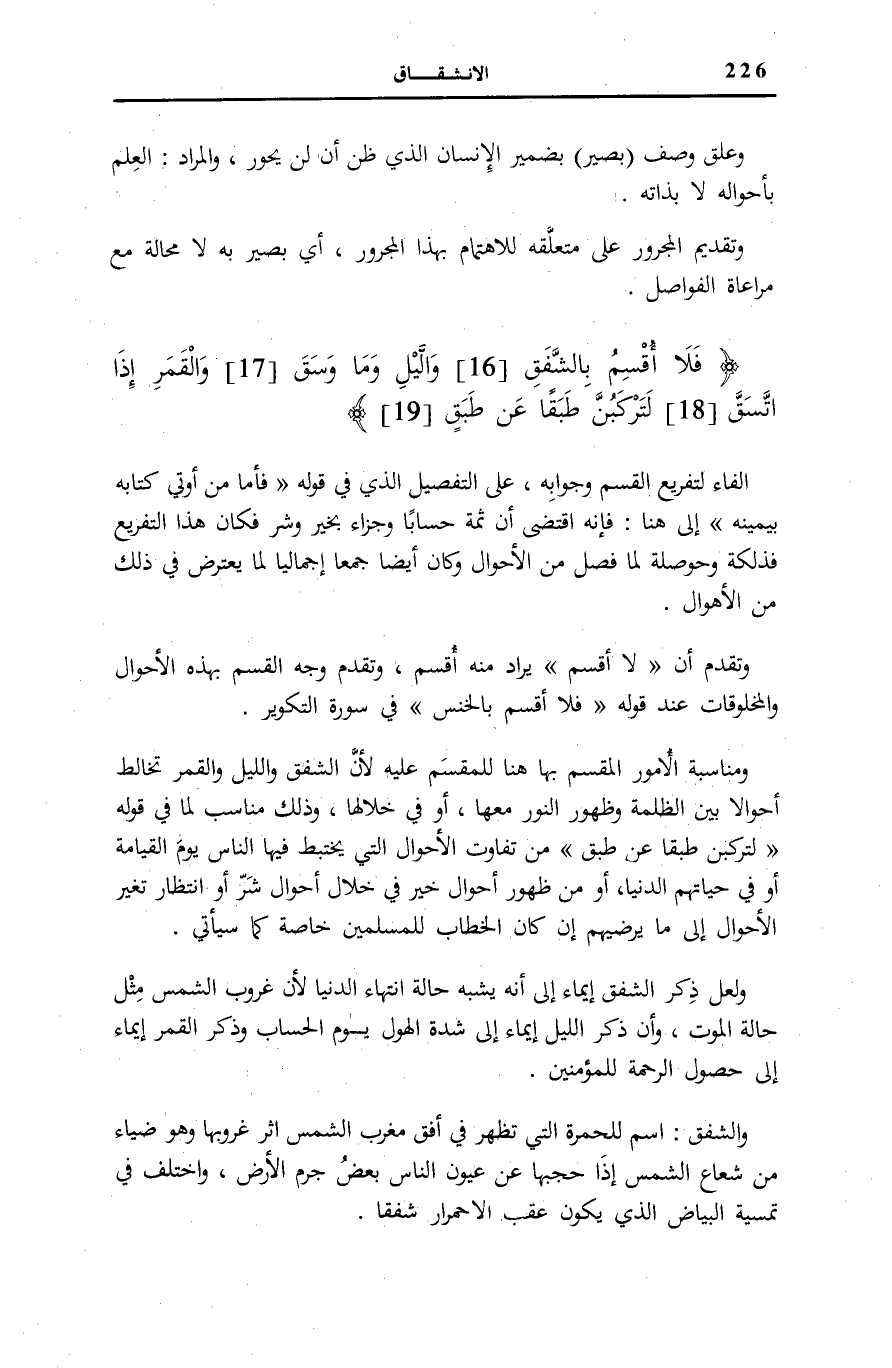 226 الانشقاق
وعلق وصف (بصير) بضمير الإنسان الذي ظن أن لن يحور ، والمراد : العِلم
بأحواله لا بذاته .
وتقديم المجرور على متعلَّقه للاهتمام بهذا المجرور ، أي بصير به لا محالة مع
مراعاة الفواصل .
﴿ فَلَا أُقْسِمُ بِالشَّفَقِ [16] وَالَّيْلِ وَمَا وَسَقَ [17] وَالْقَمَرِ إِذَا
اتَّسَقَ [18] لَتَرْكَبُنَّ طَبَقًا عَن طَبَقٍ [19] ﴾
الفاء لتفريع القسم وجوابِه ، على التفصيل الذي في قوله « فأما من أوتي كتابه
بيمينه » إلى هنا : فإنه اقتضى أن ثمة حسابًا وجزاء بخير وشر فكان هذا التفريع
فذلكة وحوصلة لما فصل من الأحوال وكان أيضا جمعا إجماليا لما يعترض في ذلك
من الأهوال .
وتقدم أن « لا أقسم » يراد منه أُقسم ، وتقدم وجه القسم بهذه الأحوال
والمخلوقات عند قوله « فلا أقسم بالخنس » في سورة التكوير .
ومناسبة الأُمور المقسم بها هنا للمقسَم عليه لأنَّ الشفق والليل والقمر تخالط
أحوالا بين الظلمة وظهور النور معها ، أو في خلالها ، وذلك مناسب لما في قوله
« لتركبن طبقا عن طبق » من تفاوت الأحوال التي يختبط فيها الناس يومَ القيامة
أو في حياتهم الدنيا، أو من ظهور أحوال خير في خلال أحوال شَرّ أو انتظار تغير
الأحوال إلى ما يرضيهم إن كان الخطاب للمسلمين خاصة كما سيأتي .
ولعل ذِكر الشفق إيماء إلى أنه يشبه حالة انتهاء الدنيا لأن غروب الشمس مِثْل
حالة الموت ، وأن ذكر الليل إيماء إلى شدة الهول يـوم الحساب وذكر القمر إيماء
إلى حصول الرحمة للمؤمنين .
والشفق : اسم للحمرة التي تظهر في أفق مغرب الشمس اثر غروبها وهو ضياء
من شعاع الشمس إذَا حجبها عن عيون الناس بعضُ جرم الأرض ، واختلف في
تمسية البياض الذي يكون عقب الاحمرار شفقا .